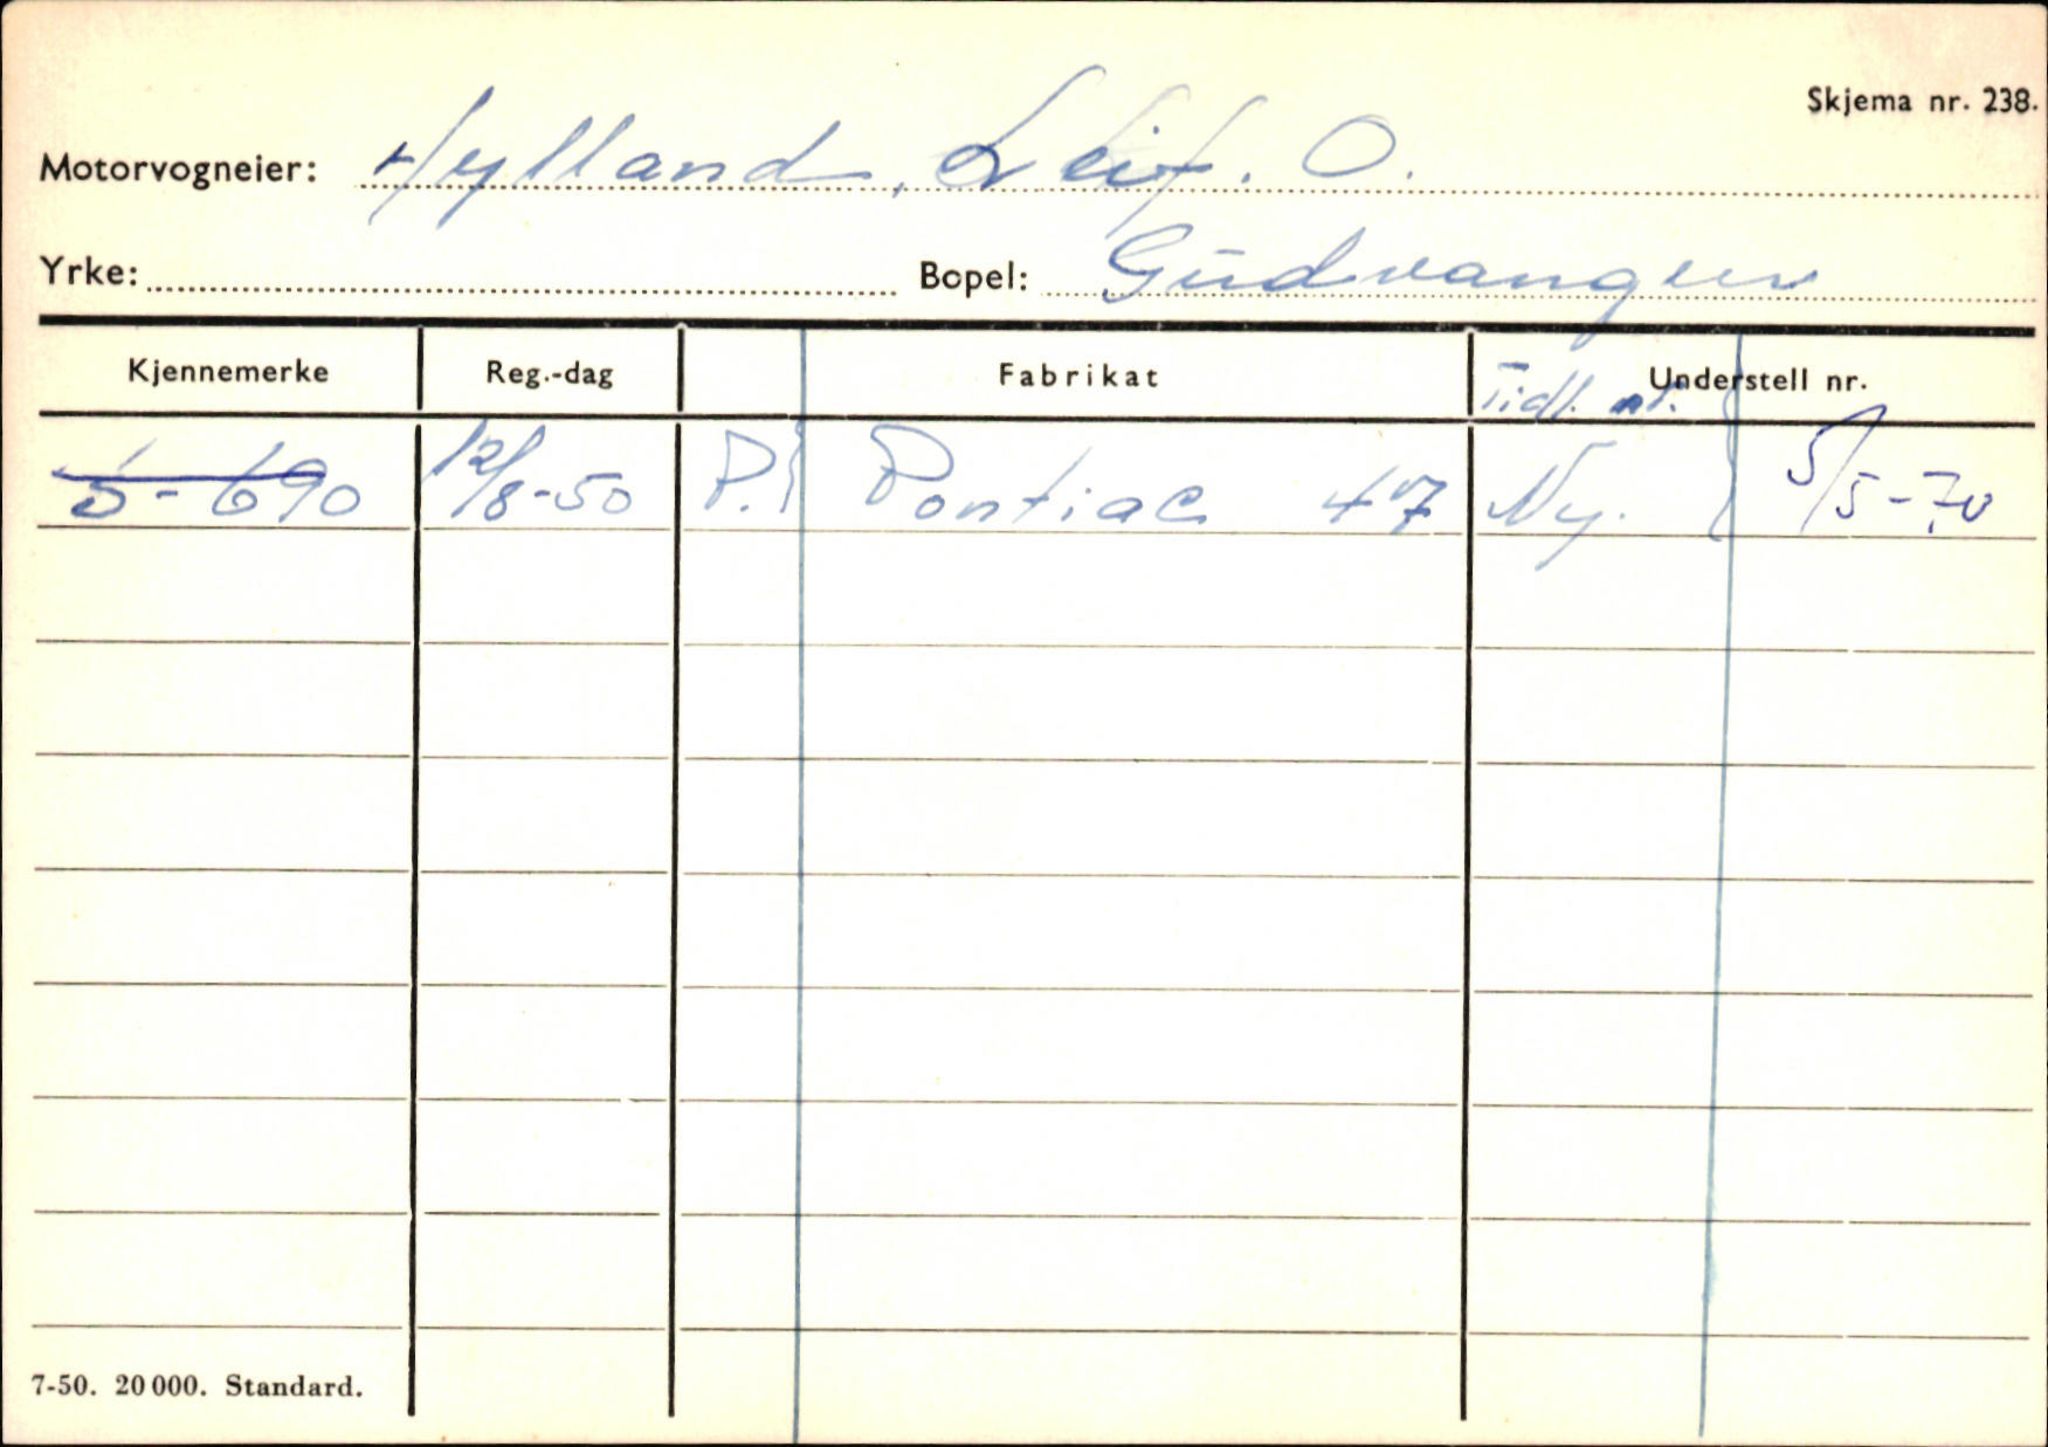 Skjema nr. 238.
Motorvogneier: Hylland, Leif. O.
Yrke: Bopel: Gudvangen
Kjennemerke Reg.-dag Fabrikat Tidl. nr. Understell nr.
S-690 12/8-50 P. Pontiac 47 Ny. 5/5-70
7-50. 20 000. Standard.